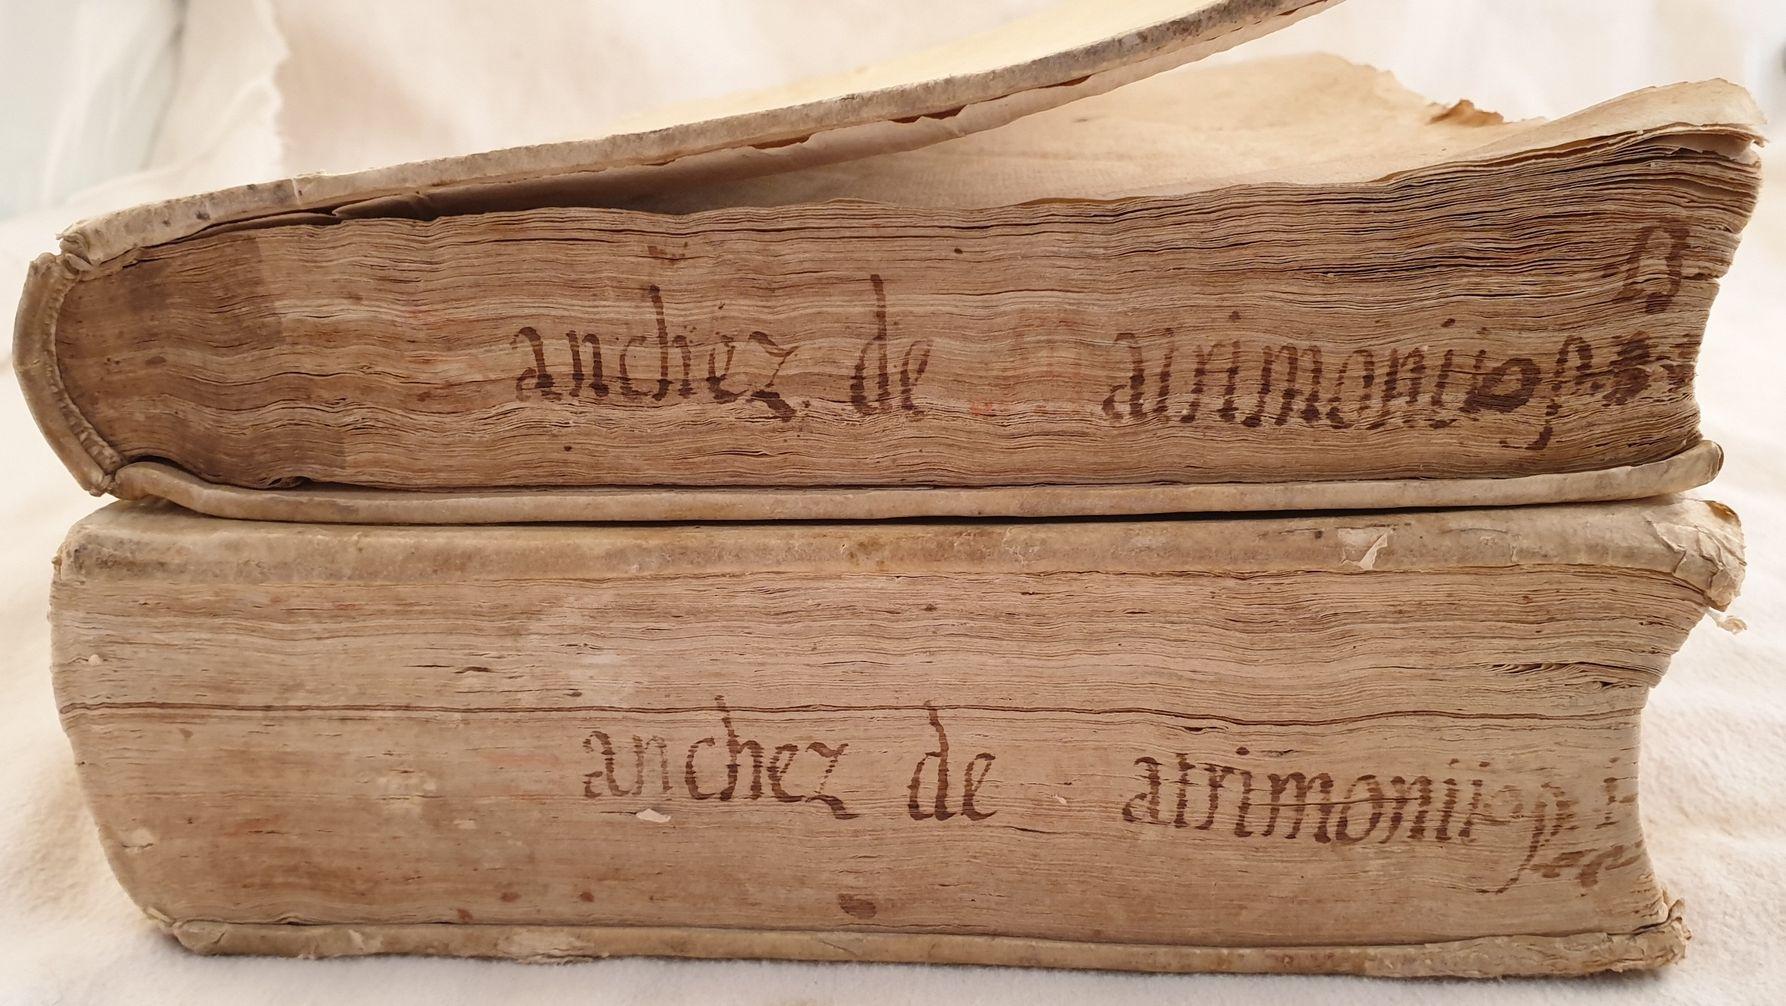 anchez de atrimonii
anchez de atrimonii